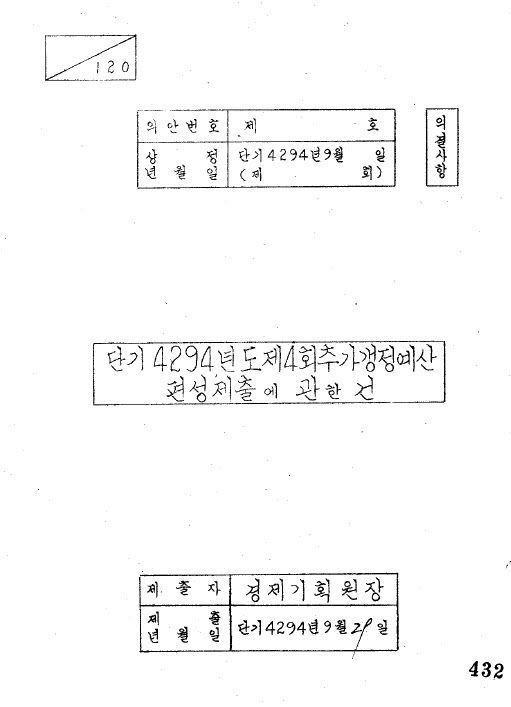 120
의안번호 제 호
의결사항
상정 단기4294년9월 일
년월일 (제 회)
단기4294년도제4회추가갱정예산
편성제출에 관한 건
제출자 경제기획원장
제출
년월일 단기4294년9월29일
432